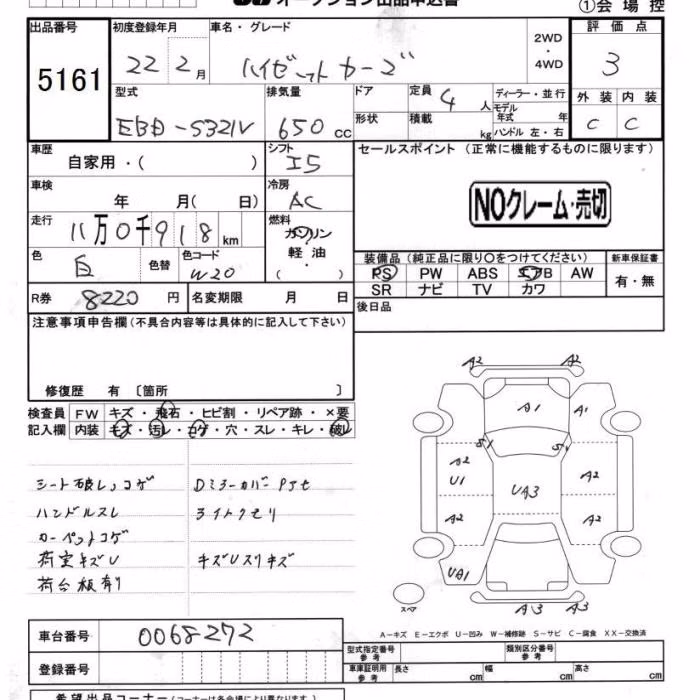 オークション出品申込書
①会場控
出品番号
5161
初度登録年月
22 2月
車名・グレード
ハイゼット カーゴ
2WD
・
4WD
評価点
3
型式
EBD-S321V
排気量
650 cc
ドア
形状
定員 4 人
積載 kg
ディーラー・並行
モデル年式 年
ハンドル 左・右
外装 内装
C C
車歴
自家用・( )
シフト
I5
セールスポイント (正常に機能するものに限ります)
NOクレーム・売切
車検
年 月( 日)
冷房
AC
走行
11万0千918km
燃料
ガソリン
軽油
・
( )
色
白
色替
色コード
W20
装備品 (純正品に限り〇をつけてください)
PS PW ABS エアB AW
SR ナビ TV カワ
新車保証書
有・無
R券 8220 円
名変期限 月 日
後日品
注意事項申告欄(不具合内容等は具体的に記入して下さい)
修復歴 有 〔箇所 〕
検査員
記入欄
FW キズ・飛石・ヒビ割・リペア跡・×要
内装 キズ・汚レ・コゲ・穴・スレ・キレ・破レ
シート破レ、コゲ
Dミラーカバー
ハンドルスレ
カーペットコゲ
荷室キズU
キズUスリキズ
荷台板有り
A2 A2
A1 A1
S1 S1
A2
U1
A2
UA3
A2 A2
UA1
A3 A3
スペア
A-キズ E-エクボ U-凹み W-補修跡 S-サビ C-腐食 XX-交換済
車台番号
0068272
登録番号
型式指定番号
参考
類別区分番号
参考
車庫証明用
参考
長さ cm 幅 cm 高さ cm
希望出品コーナー(コーナーは各会場により異なります。)